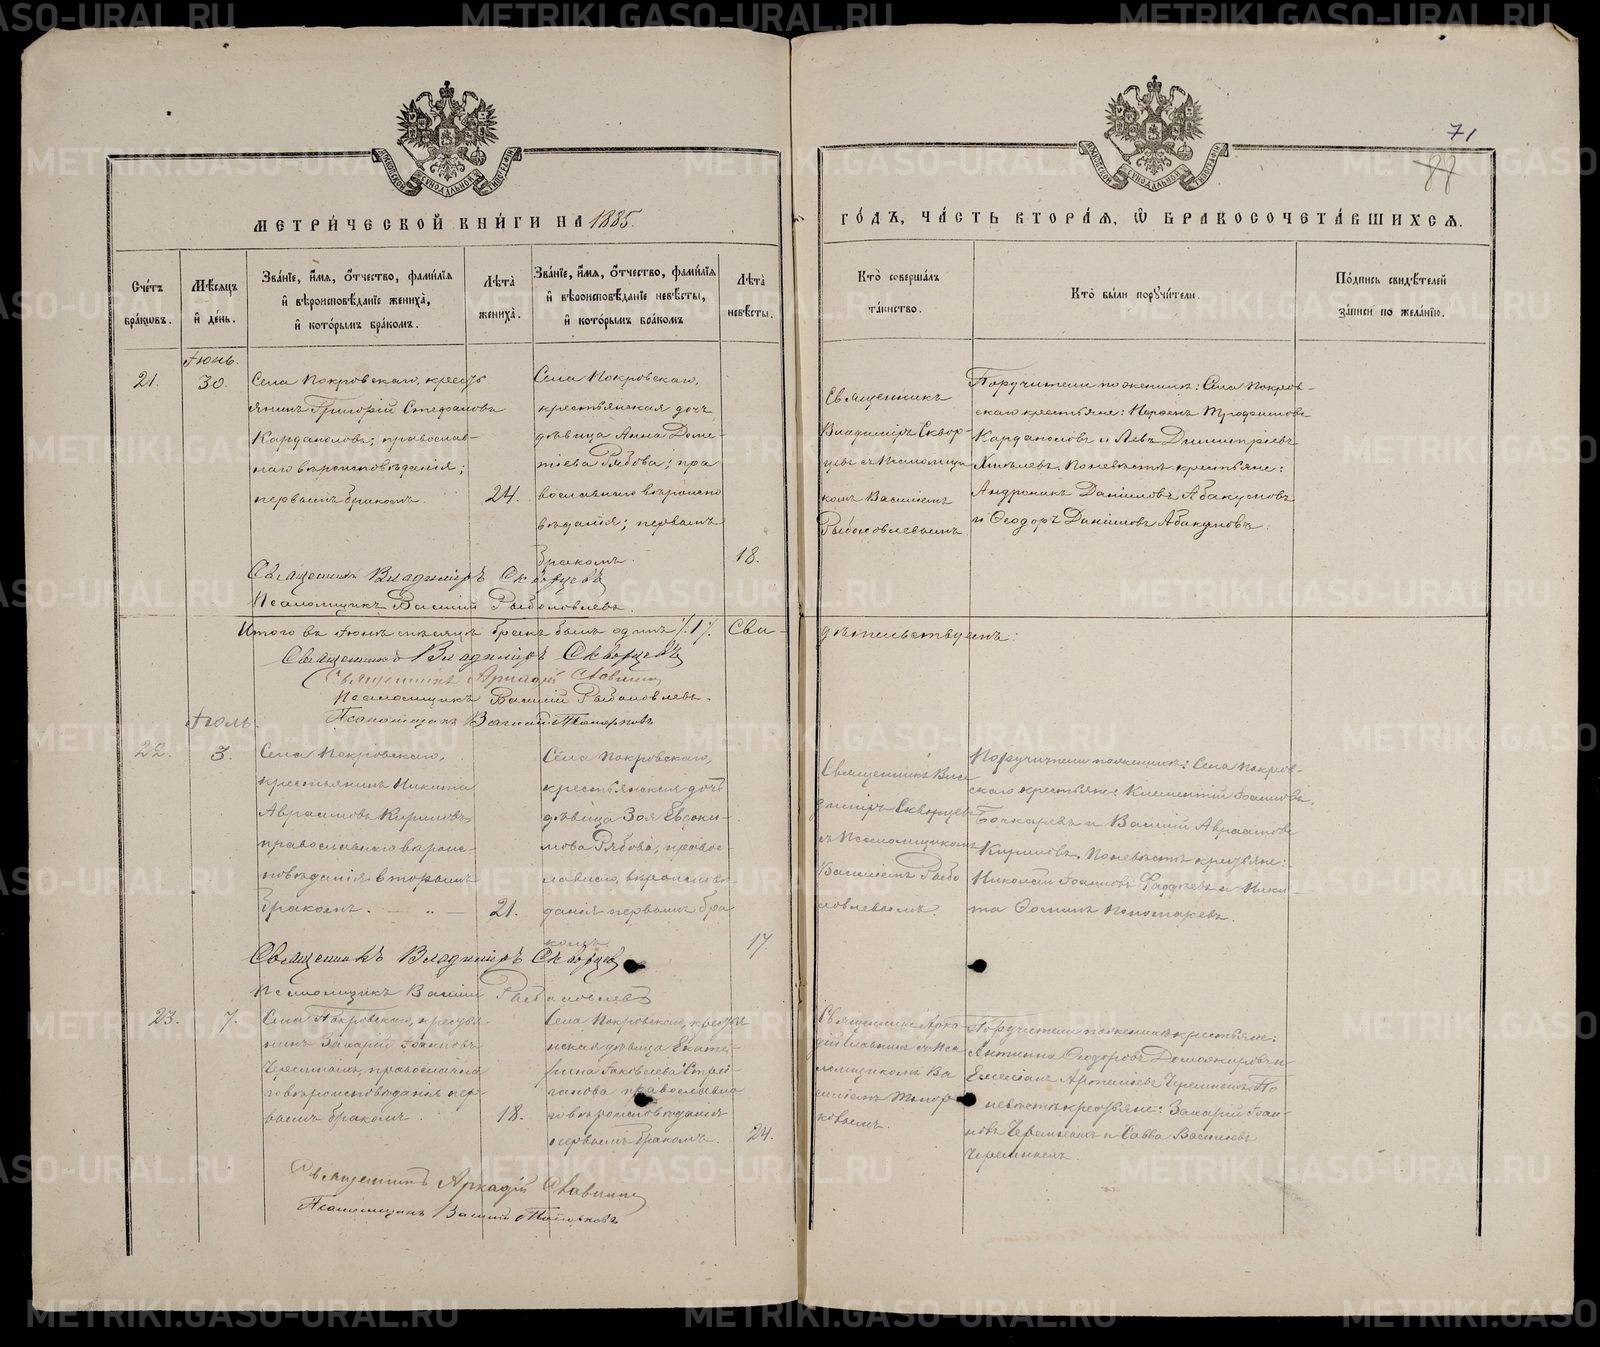 МЕТРИ́ЧЕСКОЙ КНИ́ГИ НА 1885.
ГО́ДЪ, ЧА́СТЬ ВТОРА́Я, Ѡ БРАКОСОЧЕТА́ВШИХСЯ.
71
Сче́тъ бра́ковъ.
Мѣ́сяцъ и де́нь.
Зва́нїе, и́мя, о́тчество, фами́лїя и вѣроисповѣ́данїе жениха̀, и кото́рымъ бра́комъ.
Лѣ́та жениха̀.
Зва́нїе, и́мя, о́тчество, фами́лїя и вѣроисповѣ́данїе невѣ́сты, и кото́рымъ бра́комъ
Лѣ́та невѣ́сты.
Кто̀ соверша́лъ та́инство.
Кто̀ бы́ли поручи́тели.
По́дпись свидѣ́телей за́писи по жела́нїю.
Іюнь.
21.
30.
Села Покровскаго, кресть
янинъ Григорій Стефановъ
Кардаполовъ; православ-
наго вѣроисповѣданія;
первымъ бракомъ.
24.
Села Покровскаго,
крестьянская дочь
дѣвица Анна Доме-
тіева Рябова; пра
вославнаго вѣроиспо
вѣданія; первымъ
бракомъ.
18.
Священникъ
Владиміръ Сквор-
цевъ съ Псаломщи
комъ Василіемъ
Рыболовлевымъ.
Поручители по женихѣ: Села Покров-
скаго крестьяне:
Кардаполовъ и Левъ Димитріевъ
По невѣстѣ крестьяне:
Андроникъ Даніиловъ Абакумовъ
и Ѳеодоръ Даніиловъ Абакумовъ.
Священникъ Владиміръ Скворцевъ
Псаломщикъ Василій Рыболовлевъ.
Итого въ Іюнѣ мѣсяцѣ бракъ былъ одинъ /.1/. Сви-
дѣтельствуемъ:
Священникъ Владиміръ Скворцевъ
Священникъ Аркадій Славнинъ
Псаломщикъ Василій Рыболовлевъ.
Псаломщикъ Василій Топорковъ
Іюль.
22.
3.
Села Покровскаго,
крестьянинъ Никита
Авраамовъ Кириловъ
православнаго вѣроис-
повѣданія вторымъ
бракомъ. — „ —
21.
Села Покровскаго,
крестьянская дочь
дѣвица Зоя Евдоки-
мова Рябова, право-
славнаго, вѣроисповѣ-
данія первымъ бра
комъ.
17.
Священникъ Вла
диміръ Скворцевъ
съ Псаломщикомъ
Василіемъ Рыбо
ловлевымъ.
Поручители по женихѣ: Села Покров-
скаго крестьяне: Климентій Іоанновъ
Бочкаревъ и Василій Авраамовъ
Кириловъ. По невѣстѣ крестьяне:
Николай Іоанновъ Фаддѣевъ и Ники-
та Ѳоминъ Пономаревъ.
Священникъ Владиміръ Скворцевъ
Псаломщикъ Василій Рыболовлевъ
23.
7.
Села Покровскаго, крестья-
нинъ Захарій Іоанновъ
Черемныхъ, православна
го вѣроисповѣданія пер-
вымъ бракомъ.
18.
Села Покровскаго, крестья
нская дѣвица Екате-
рина Іаковлева Стри
ганова православна
го вѣроисповѣданія
первымъ бракомъ.
24.
Священникъ Арка
дій Славнинъ съ Пса
ломщикомъ Ва
силіемъ Топор-
ковымъ.
Поручители по женихѣ крестьяне:
Антипа Ѳеодоровъ Домажировъ и
Емеліанъ Черемныхъ По
невѣстѣ крестьяне: Захарій Іоан-
новъ Черемныхъ и Савва Василіевъ
Черемныхъ.
Священникъ Аркадій Славнинъ
Псаломщикъ Василій Топорковъ